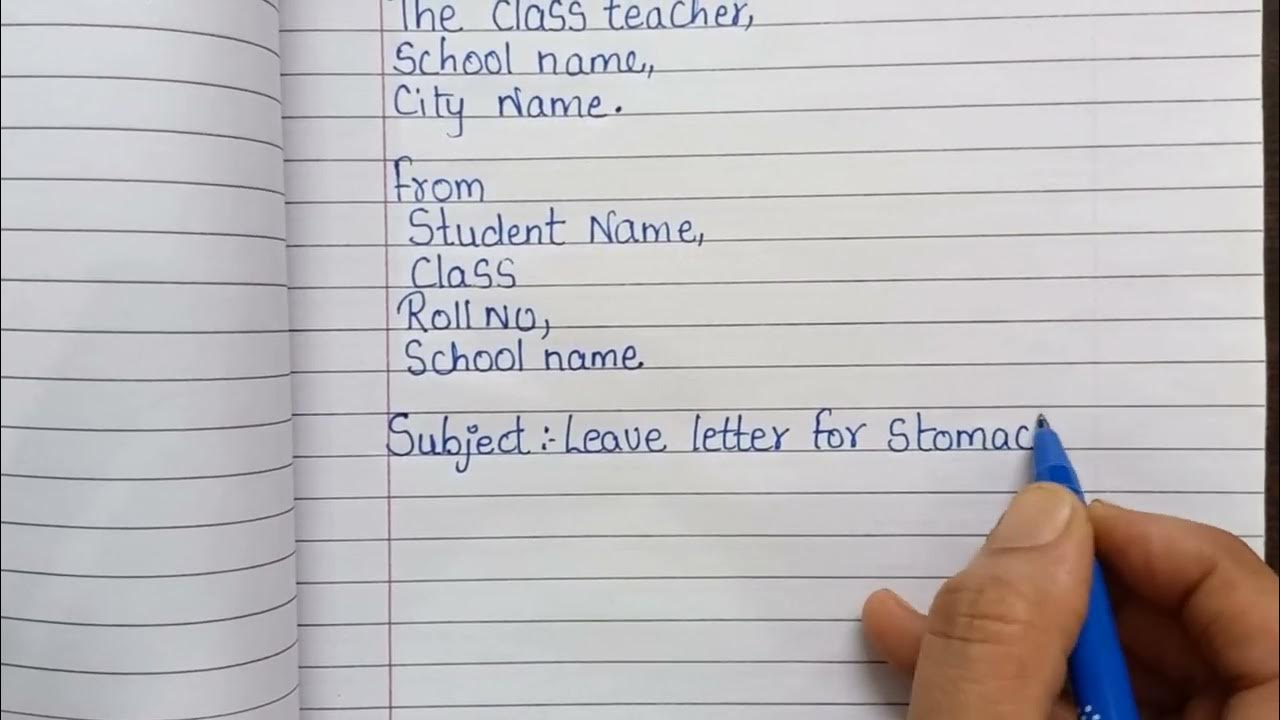 The Class teacher,
School name,
City Name.
From
Student Name,
Class
Roll No,
School name
Subject :- Leave letter for Stomac